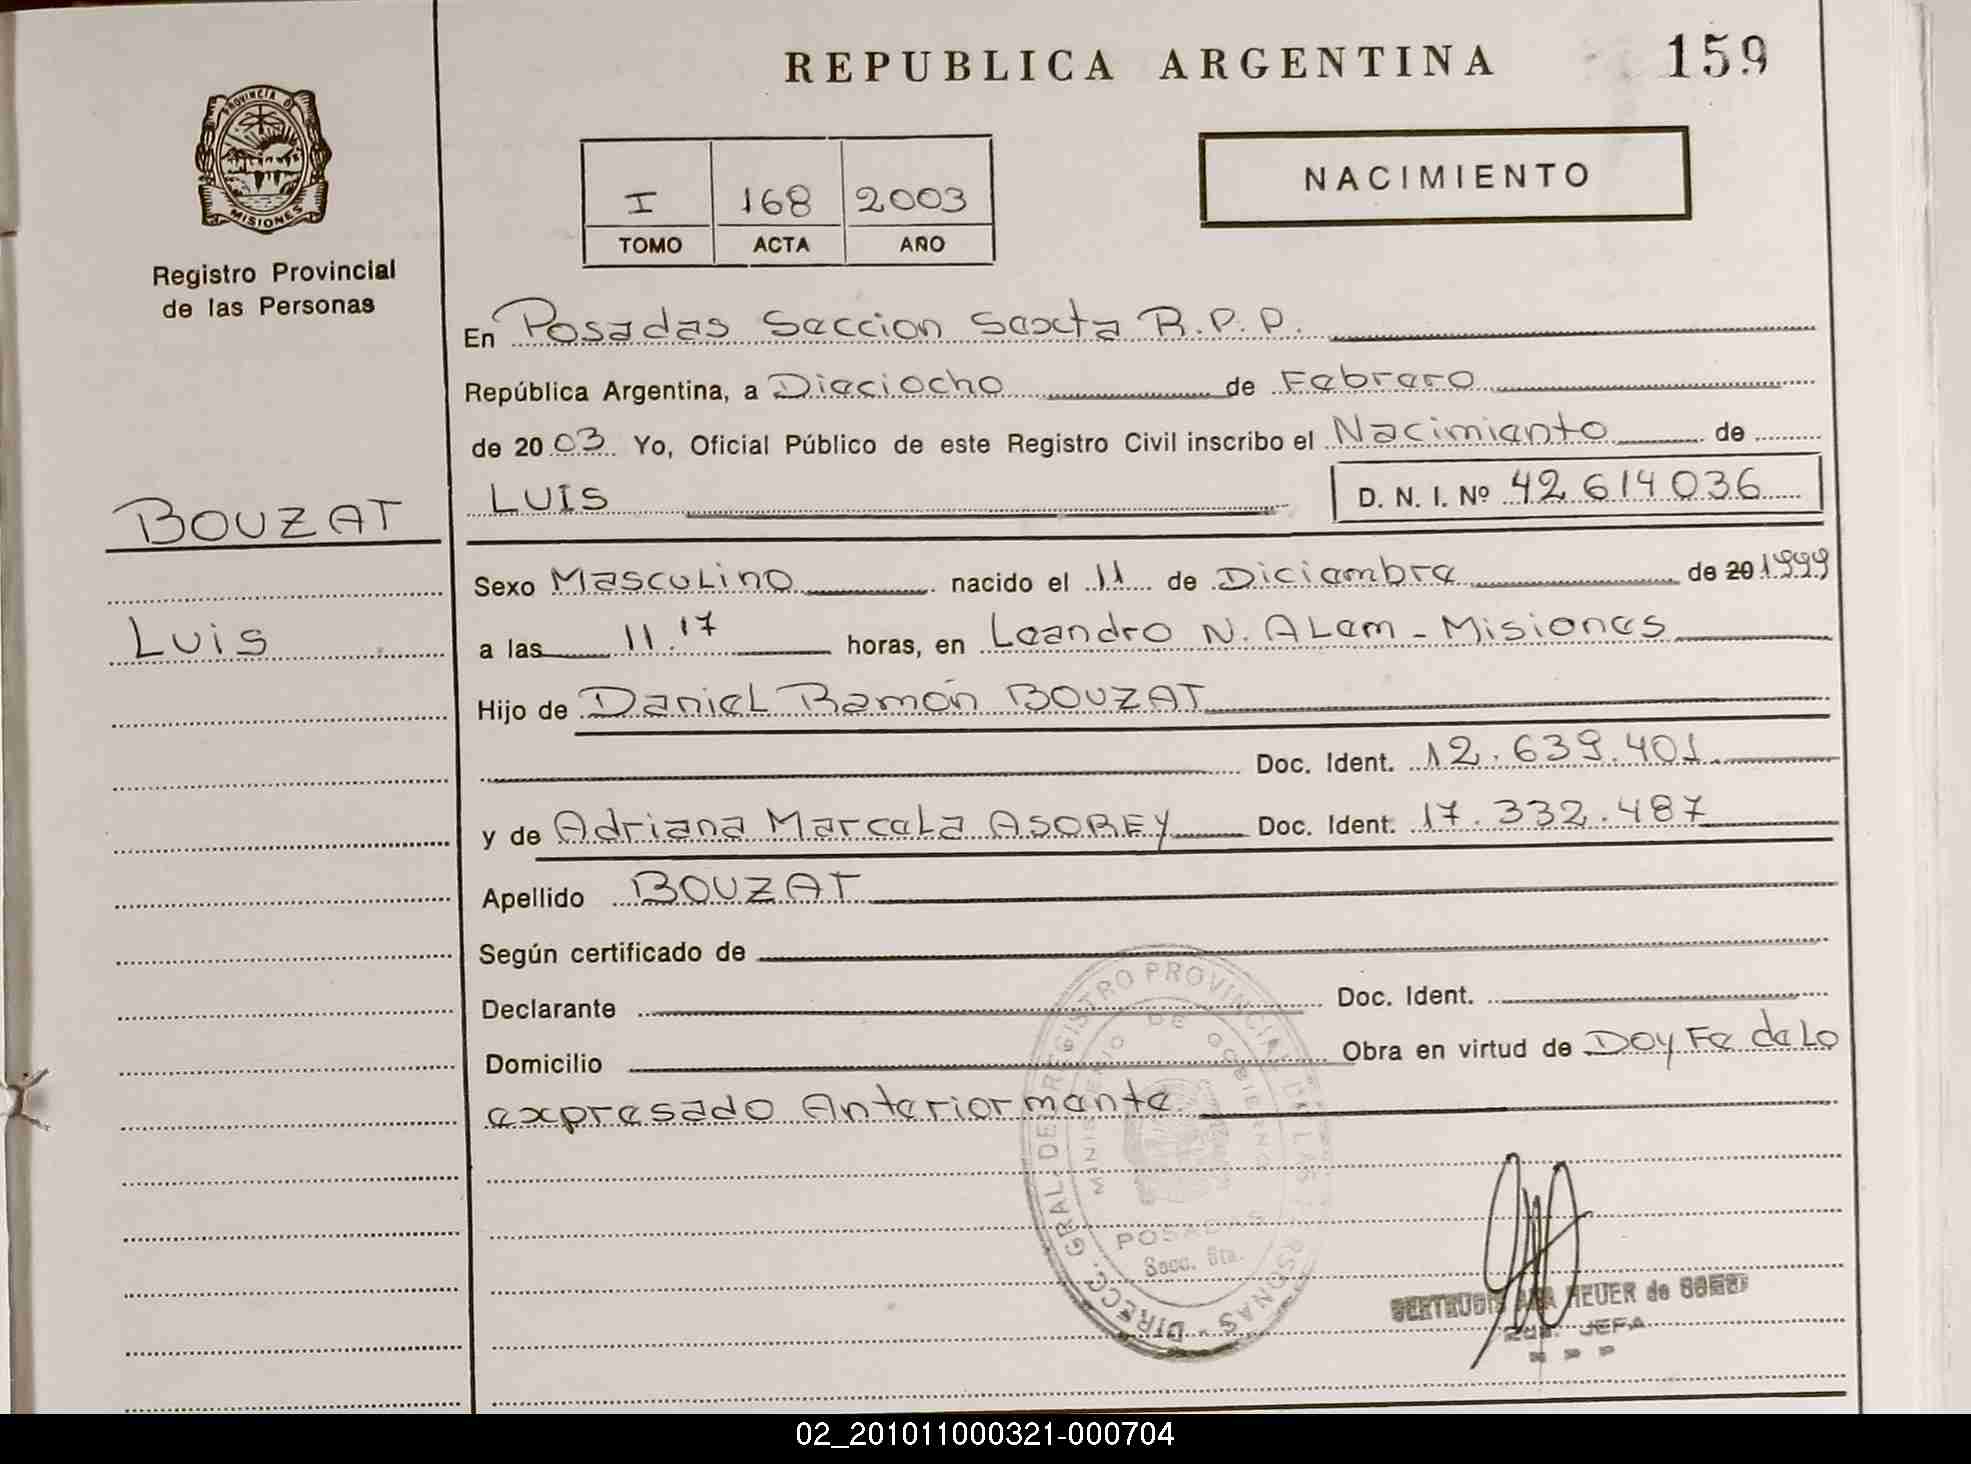 REPUBLICA ARGENTINA
159
PROVINCIA DE
MISIONES
Registro Provincial
de las Personas
I 168 2003
TOMO ACTA AÑO
NACIMIENTO
En Posadas Seccion Sexta R.P.P.
República Argentina, a Dieciocho de Febrero
de 2003 Yo, Oficial Público de este Registro Civil inscribo el Nacimiento de
LUIS D. N. I. Nº 42 614 036
BOUZAT
Luis
Sexo Masculino nacido el 11 de Diciembre de 20 1999
a las 11.17 horas, en Leandro N. ALem - Misiones
Hijo de Daniel Ramón BOUZAT
Doc. Ident. 12.639.401
y de Adriana Marcela ASOREY Doc. Ident. 17.332.487
Apellido BOUZAT
Según certificado de
Declarante Doc. Ident.
Domicilio Obra en virtud de Doy Fe de Lo
expresado Anteriormente
DIRECC. GRAL. DE REGISTRO PROVINCIAL DE LAS PERSONAS -
MINISTERIO DE GOBIERNO
POSADAS
Secc. 6ta.
HEUER de
JEFA
02_201011000321-000704